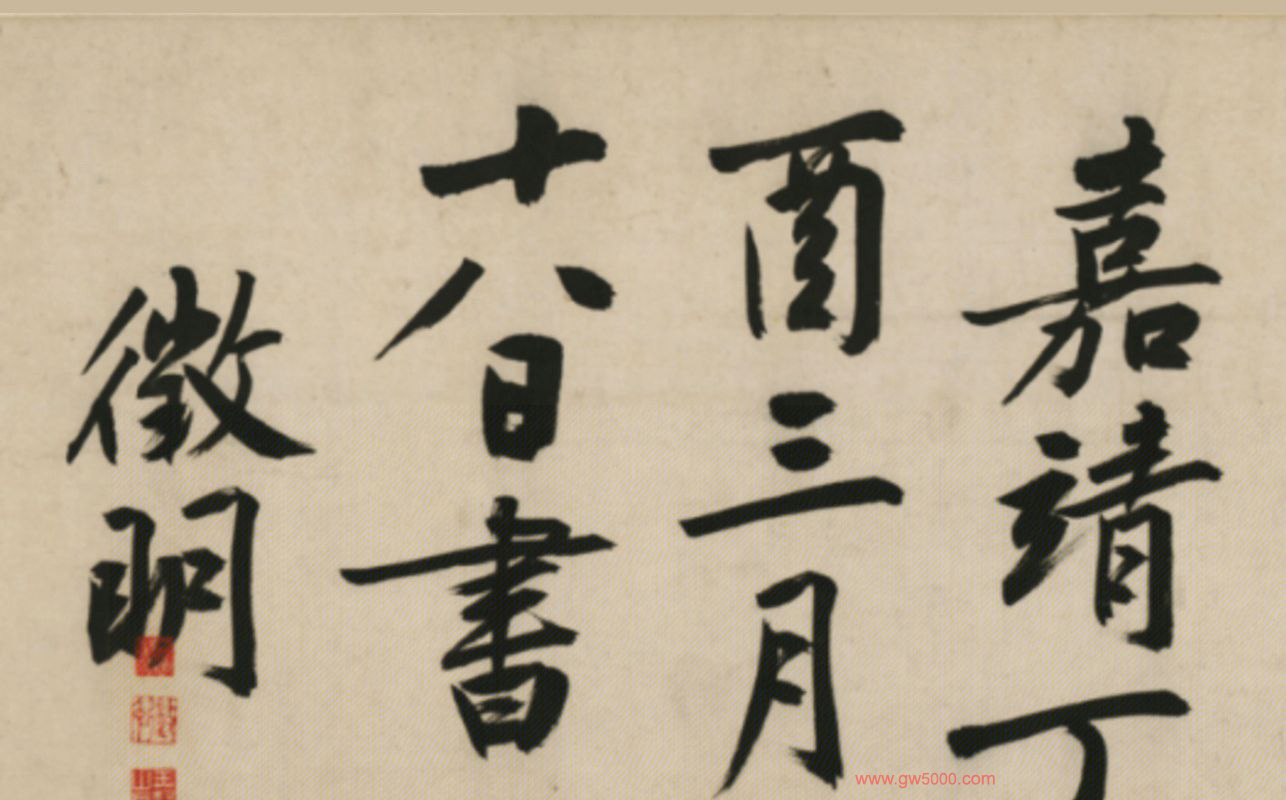 嘉靖丁
酉三月
十八日書
徵明
www.gw5000.com